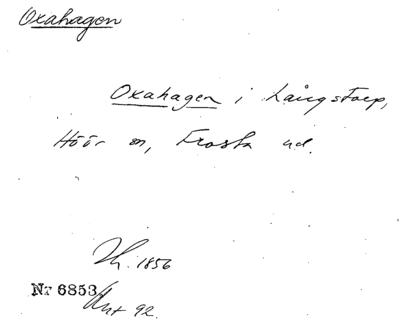 Oxahagen
Oxahagen i Långstorp,
Höör sn, Frosta hd.
1856
Nr 6853
92.